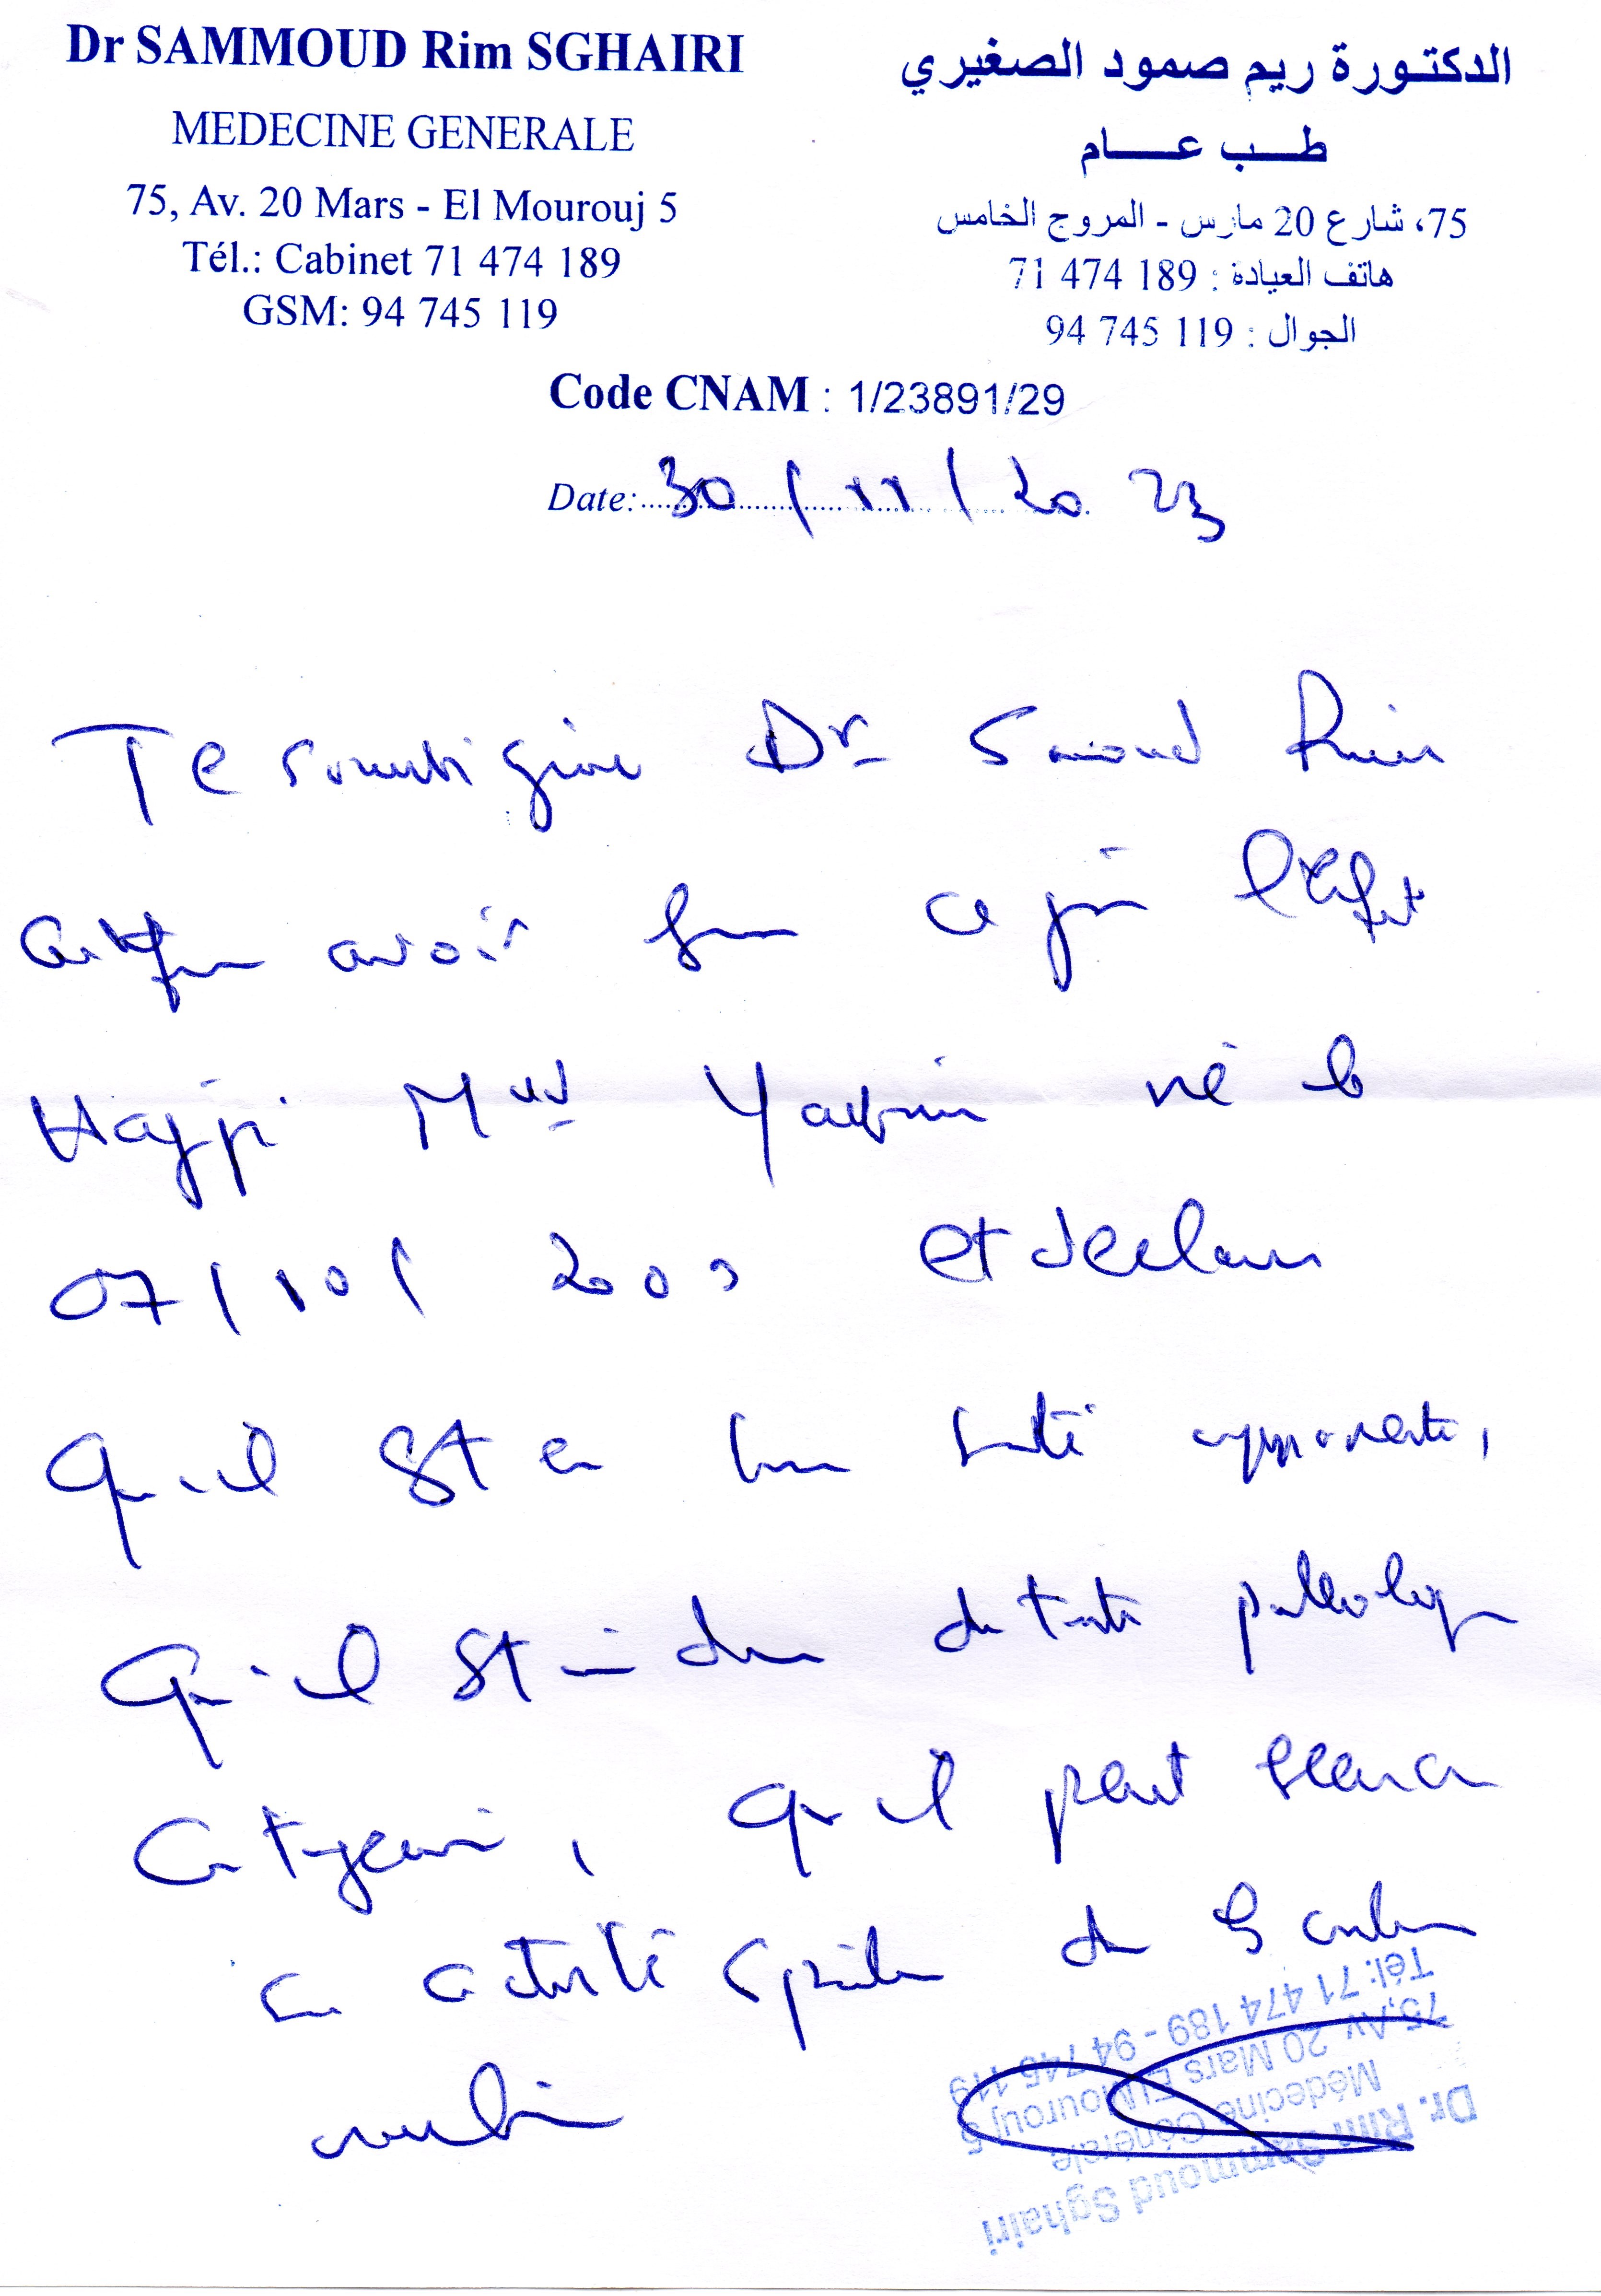 Dr SAMMOUD Rim SGHAIRI
MEDECINE GENERALE
75, Av. 20 Mars - El Mourouj 5
Tél.: Cabinet 71 474 189
GSM: 94 745 119
الدكتورة ريم صمود الصغيري
طب عام
75، شارع 20 مارس - المروج الخامس
هاتف العيادة : 189 474 71
الجوال : 119 745 94
Code CNAM : 1/23891/29
Date: 30/11/2023
Je soussigné Dr Samoud Rim
certifie avoir ce jour l'enfant
Hajji Med né le
07/10/2000 et declare
Qu'il est en bonne santé apparente,
Qu'il est de toute pathologie
contagieuse, qu'il peut exercer
activité de
Dr. Rim Sammoud Sghairi
Médecine Générale
75, Av 20 Mars El Mourouj 5
Tél: 71 474 189 - 94 745 119